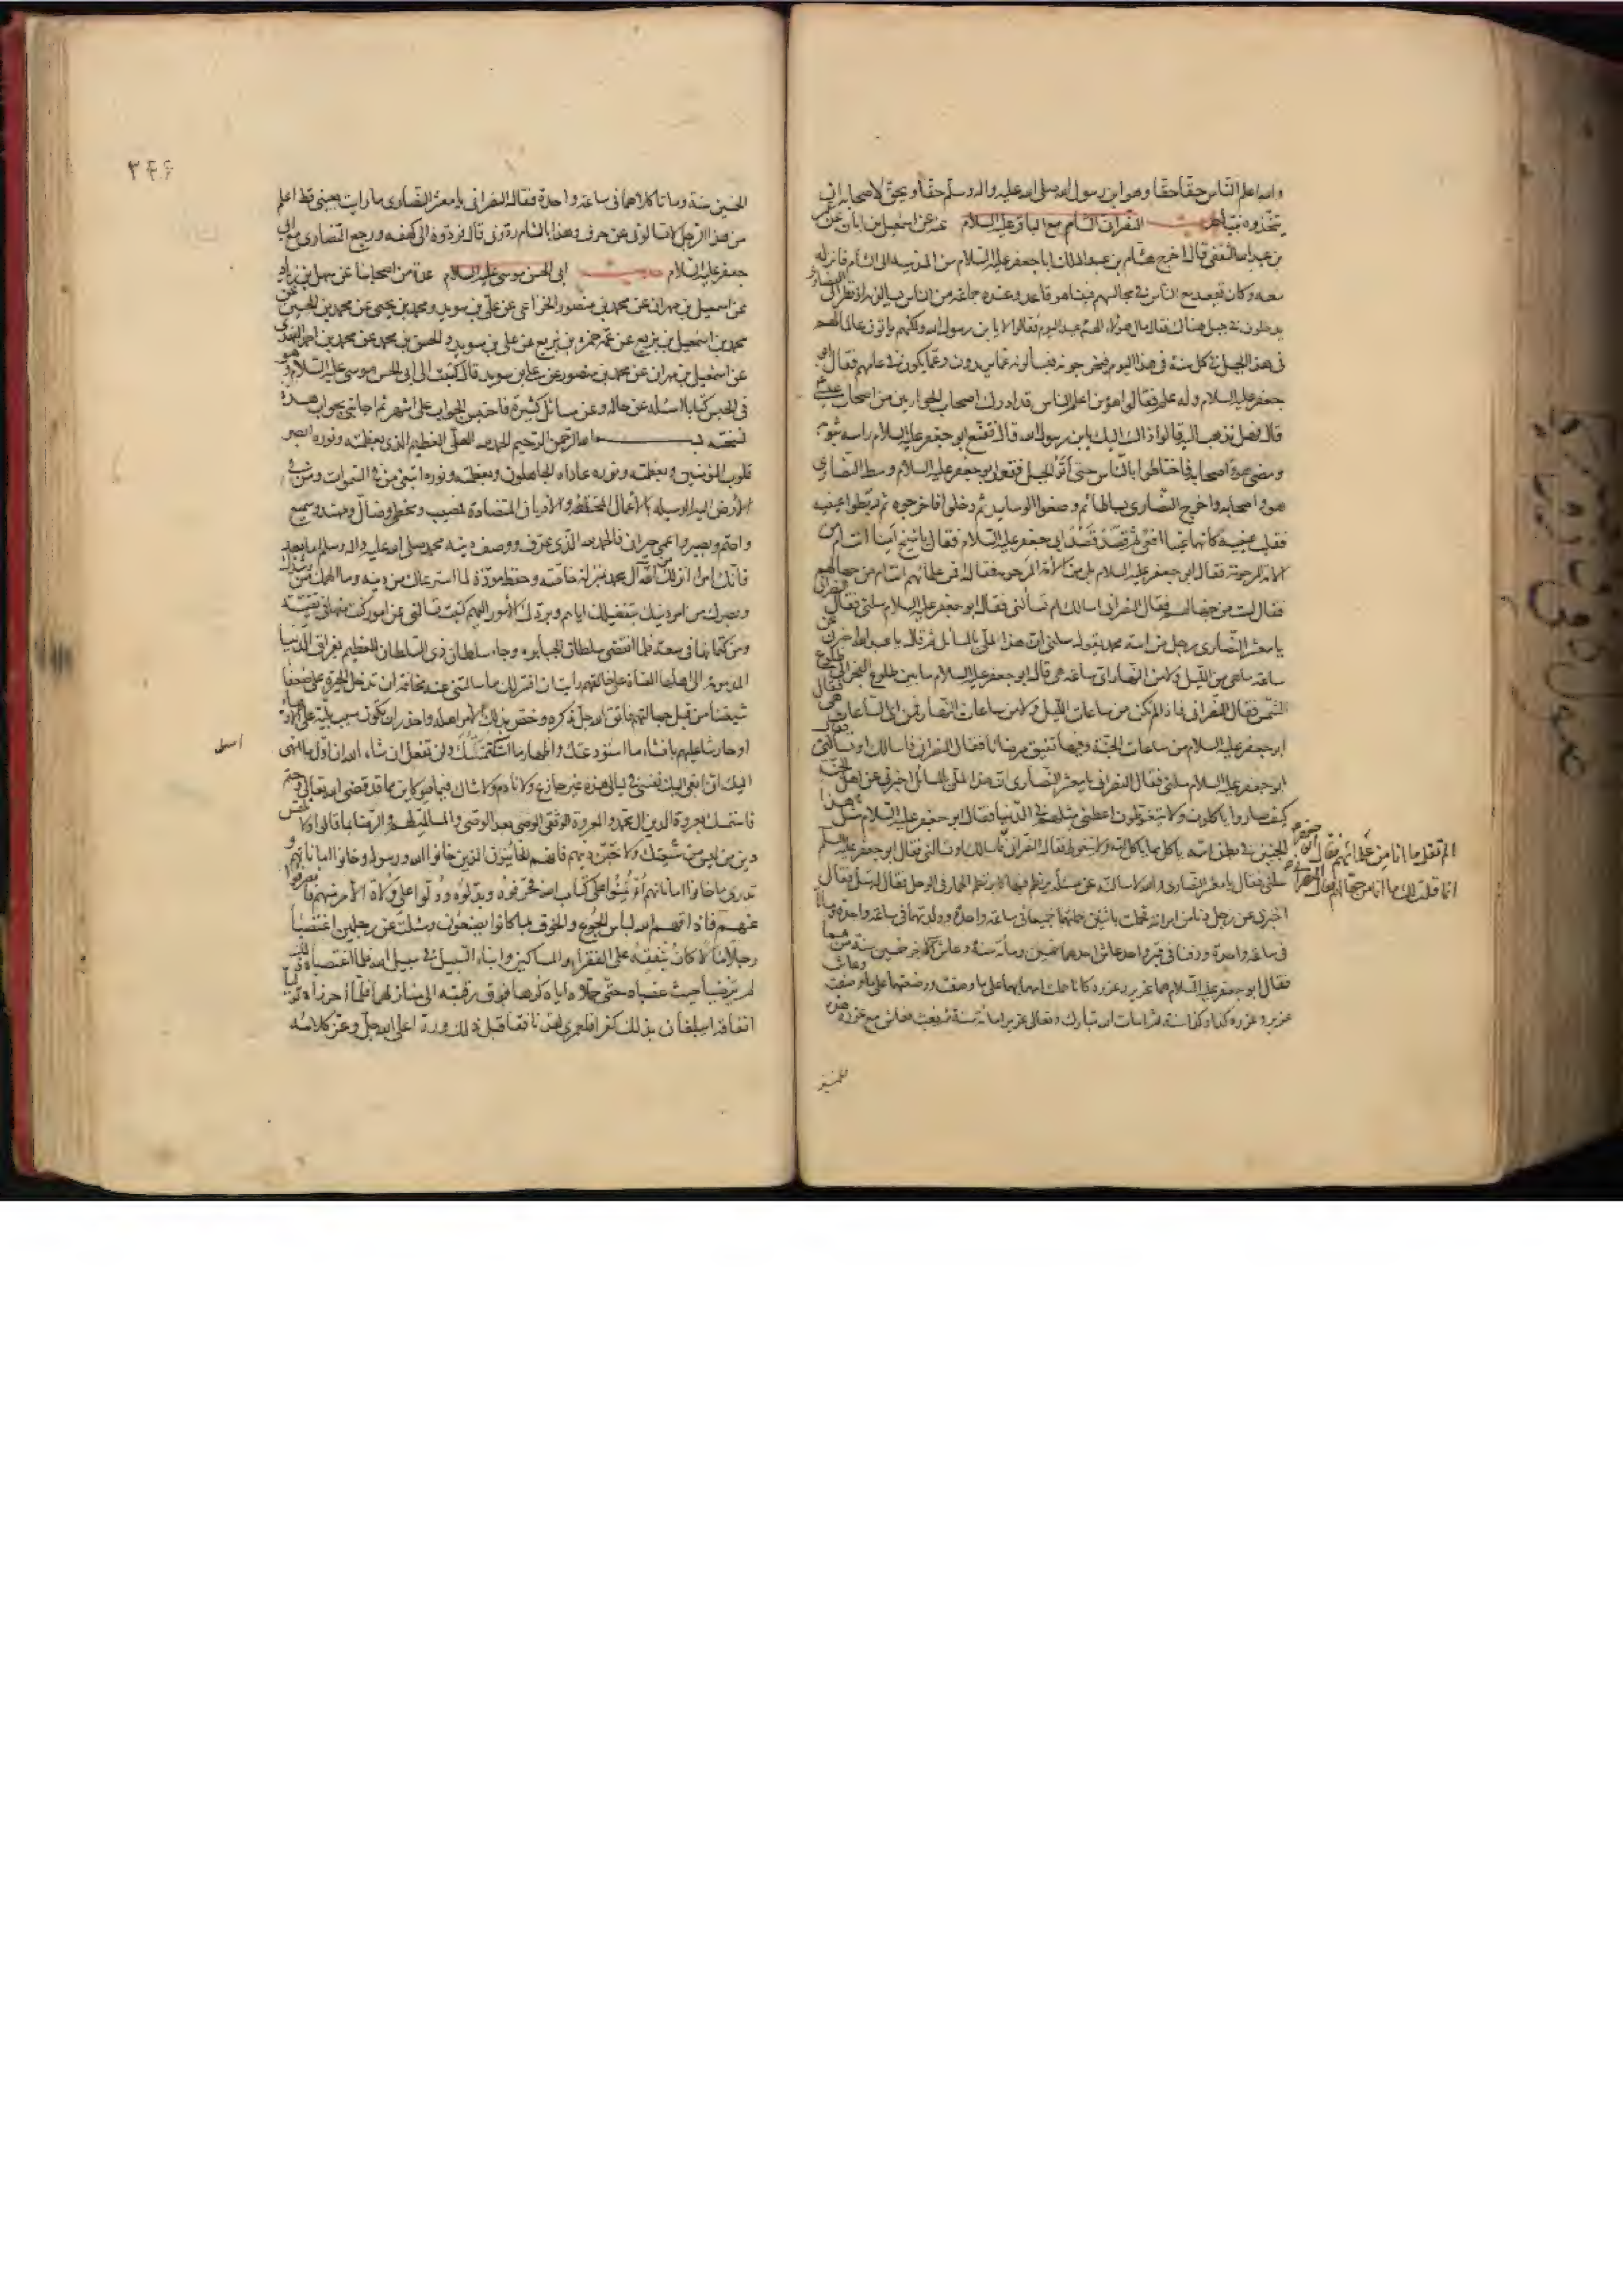 والله اعلم الناس حقا حقا وهو ابن رسول الله صلى الله عليه واله وسلم حقا ويحق لاصحابه ان
يتخذوه نبيا حديث النصرانى الشام مع الباقر عليه السلام عنه عن اسمعيل بن ابان عن عمر
بن عبد الله الثقفى قال اخرج هشام بن عبد الملك ابا جعفر عليه السلام من المدينه الى الشام فانزله
معه وكان يقعد مع الناس فى مجالسهم فبينا هو قاعد وعنده جماعة من الناس يسالونه اذ نظر الى النصارى
يدخلون فى جبل هناك فقال ما لهولاء الهم عيد اليوم فقالوا لا يا بن رسول الله ولكنهم ياتون عالما لهم
فى هذا الجبل فى كل سنة فى هذا اليوم فيخرجونه فيسألونه عما يريدون وعما يكون فى عامهم فقال ابو
جعفر عليه السلام وله علم فقالوا هو من اعلم الناس قد ادرك اصحاب الحواريين من اصحاب عيسى
قال فهل نذهب اليه قالوا ذاك اليك يا بن رسول الله قال فقنع ابو جعفر عليه السلام راسه بثوبه
ومضى هو واصحابه فاختلطوا بالناس حتى اتوا الجبل فقعد ابو جعفر عليه السلام وسط النصارى
هو واصحابه واخرج النصارى بساطا ثم وضعوا الوسايد ثم دخلوا فاخرجوه ثم ربطوا عينيه
فقلب عينيه كانهما عينا افعى ثم قصد قصد ابى جعفر عليه السلام فقال يا شيخ امنا انت ام من
الامة المرحومة فقال ابو جعفر عليه السلام بل من الامة المرحومه فقال افمن علمائهم انت ام من جهالهم
فقال لست من جهالهم فقال النصرانى اسالك ام تسألنى فقال ابو جعفر عليه السلام سلنى فقال النصرانى
يا معشر النصارى رجل من امة محمد يقول سلنى ان هذا لملى بالمسائل ثم قال يا عبد الله اخبرنى عن
ساعة ما هى من الليل ولا من النهار اى ساعة هى قال ابو جعفر عليه السلام ما بين طلوع الفجر الى طلوع
الشمس فقال النصرانى فاذا لم تكن من ساعات الليل ولا من ساعات النهار فمن اى الساعات هى فقال
ابو جعفر عليه السلام من ساعات الجنة وفيها تفيق مرضانا فقال النصرانى فاسالك او تسألنى فقال
ابو جعفر عليه السلام سلنى فقال النصرانى يا معشر النصارى ان هذا لملى بالمسائل اخبرنى عن اهل الجنة
كيف صاروا ياكلون ولا يتغوطون اعطنى مثلهم فى الدنيا فقال ابو جعفر عليه السلام مثل هذا
الجنين فى بطن امه ياكل مما تاكل امه ولا يتغوط فقال النصرانى
الم تقل ما انا من علمائهم فقال ابو جعفر
انما قلت لك ما انا من جهالهم فقال النصرانى
فاسالك او تسالنى فقال ابو جعفر عليه السلم
سلنى فقال يا معشر النصارى والله لاسالنه عن مسألة يرتطم فيها كما يرتطم الحمار فى الوحل فقال له سل فقال
اخبرنى عن رجل دنا من امراته فحملت باثنين حملتهما جميعا فى ساعة واحدة وولدتهما فى ساعة واحدة وماتا
فى ساعة واحدة ودفنا فى قبر واحد عاش احدهما خمسين ومأة سنة وعاش الاخر خمسين سنة من هما
فقال ابو جعفر عليه السلام هما عزير وعزره كانا حملت امهما بهما على ما وصفت ووضعتهما على ما وصفت وعاش
عزير وعزره كذا وكذا سنة ثم امات الله تبارك وتعالى عزيرا مائة سنة ثم بعث فعاش مع عزره هذه
الخمسين
٣٤٤
الخمسين سنة وماتا كلاهما فى ساعة واحدة فقال النصرانى يا معشر النصارى ما رايت بعينى قط اعلم
من هذا الرجل لا تسالونى عن حرف وهذا بالشام ردونى قال فردوه الى كهفه ورجع النصارى مع ابى
جعفر عليه السلام حديث ابى الحسن موسى عليه السلام عدة من اصحابنا عن سهل بن زياد
عن اسمعيل بن مهران عن محمد بن منصور الخزاعى عن على بن سويد ومحمد بن يحيى عن محمد بن الحسين عن
محمد بن اسمعيل بن بزيع عن عمه حمزة بن بزيع عن على بن سويد والحسن بن محمد عن محمد بن احمد النهدى
عن اسمعيل بن مهران عن محمد بن منصور عن على بن سويد قال كتبت الى ابى الحسن موسى عليه السلام وهو
فى الحبس كتابا اسئله عن حاله وعن مسائل كثيرة فاحتبس الجواب على اشهر ثم اجابنى بجواب هذه
نسخته بسم الله الرحمن الرحيم الحمد لله العلى العظيم الذى بعظمته ونوره ابصر
قلوب المؤمنين وبعظمته ونوره عاداه الجاهلون وبعظمته ونوره ابتغى من فى السموات ومن فى
الارض اليه الوسيله بالاعمال المختلفة والاديان المتضادة فمصيب ومخطئ وضال ومهتد وسميع
واصم وبصير واعمى حيران فالحمد لله الذى عرف ووصف دينه محمد صلى الله عليه واله وسلم اما بعد
فانك امرؤ انزلك الله من آل محمد بمنزلة خاصة وحفظ مودة لما استرعاك من دينه وما الهمك من رشدك
وبصرك من امر دينك بتفضيلك اياهم وبردك الامور اليهم كتبت تسالنى عن امور كنت منها فى تقية
ومن كتمانها فى سعة فلما انقضى سلطان الجبابره وجاء سلطان ذى السلطان العظيم بفراق الدنيا
المذمومة الى اهلها العتاة على خالقهم رايت ان افسر لك ما سالتنى عنه مخافة ان تدخل الحيرة على ضعفاء
شيعتنا من قبل جهالتهم فاتق الله جل ذكره وخص بذلك الامر اهله واحذر ان تكون سبب بلية على الاوصياء
او حارشا عليهم بافشاء ما استودعتك واظهار ما استكتمتك ولن تفعل ان شاء الله ان اول ما انهى
اليك انى انعى اليك نفسى فى ليالى هذه غير جازع ولا نادم ولا شاك فيما هو كاين مما قد قضى الله تعالى وحتم
فاستمسك بعروة الدين آل محمد والعروة الوثقى الوصى بعد الوصى والمسالمة لهم والرضا بما قالوا ولا تلتمس
دين من ليس من شيعتك ولا تحبن دينهم فانهم الخائنون الذين خانوا الله ورسوله وخانوا اماناتهم و
تدرى ما خانوا اماناتهم ائتمنوا على كتاب الله فحرفوه وبدلوه ودلوا على ولاة الامر منهم فانصرفوا
عنهم فاذاقهم الله لباس الجوع والخوف بما كانوا يصنعون وسئلت عن رجلين اغتصبا
رجلا مالا كان ينفقه على الفقراء والمساكين وابناء السبيل وفى سبيل الله فلما اغتصباه ذلك
لم يرضيا حيث غصباه حتى حملاه اياه كرها فوق رقبته الى منازلهما فلما احرزاه توليا
انفاقه ايبلغان بذلك كفرا فلعمرى لقد نافقا قبل ذلك وردا على الله جل وعز كلامه